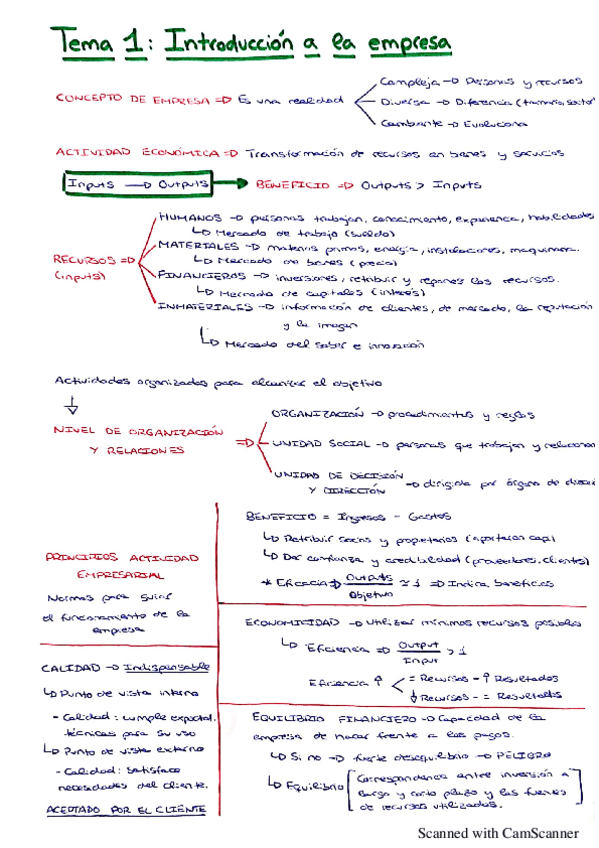 Tema 1: Introducción a la empresa
CONCEPTO DE EMPRESA => Es una realidad
Compleja -> Personas y recursos
Diversa -> Diferencia (tamaño, sector
Cambiante -> Evoluciona
ACTIVIDAD ECONÓMICA => Transformación de recursos en bienes y servicios
Inputs -> Outputs -> BENEFICIO => Outputs > Inputs
RECURSOS => (inputs)
HUMANOS -> personas trabajan, conocimiento, experiencia, habilidades
↳ Mercado de trabajo (sueldo)
MATERIALES -> materias primas, energía, instalaciones, maquinaria.
↳ Mercado de bienes (precio)
FINANCIEROS -> inversiones, retribuir y reponer los recursos.
↳ Mercado de capitales (interés)
INMATERIALES -> información de clientes, de mercado, la reputación
y la imagen
↳ Mercado del saber e innovación
Actividades organizadas para alcanzar el objetivo
↓
NIVEL DE ORGANIZACIÓN
Y RELACIONES =>
ORGANIZACIÓN -> procedimientos y reglas
UNIDAD SOCIAL -> personas que trabajan y relacionan
UNIDAD DE DECISIÓN
Y DIRECCIÓN -> dirigida por órgano de
PRINCIPIOS ACTIVIDAD
EMPRESARIAL
Normas para guiar
el funcionamiento de la
empresa
BENEFICIO = Ingresos - Gastos
↳ Retribuir socios y propietarios (aportaron cap)
↳ Dar confianza y credibilidad (proveedores, clientes)
* Eficacia => Outputs / Objetivo ≃ 1 => Indica beneficios
ECONOMICIDAD -> Utilizar mínimos recursos posibles
↳ Eficiencia => Output / Input > 1
Eficiencia ↑
= Recursos - ↑ Resultados
↓ Recursos - = Resultados
CALIDAD -> Indispensable
↳ Punto de vista interno
- Calidad: cumple especial.
técnicas para su uso
↳ Punto de vista externo
- Calidad: satisface
necesidades del cliente.
ACEPTADO POR EL CLIENTE
EQUILIBRIO FINANCIERO -> Capacidad de la
empresa de hacer frente a los pagos.
↳ Si no -> fuerte desequilibrio -> PELIGRO
↳ Equilibrio [Correspondencia entre inversión a
largo y corto plazo y las fuentes
de recursos utilizadas.]
Scanned with CamScanner